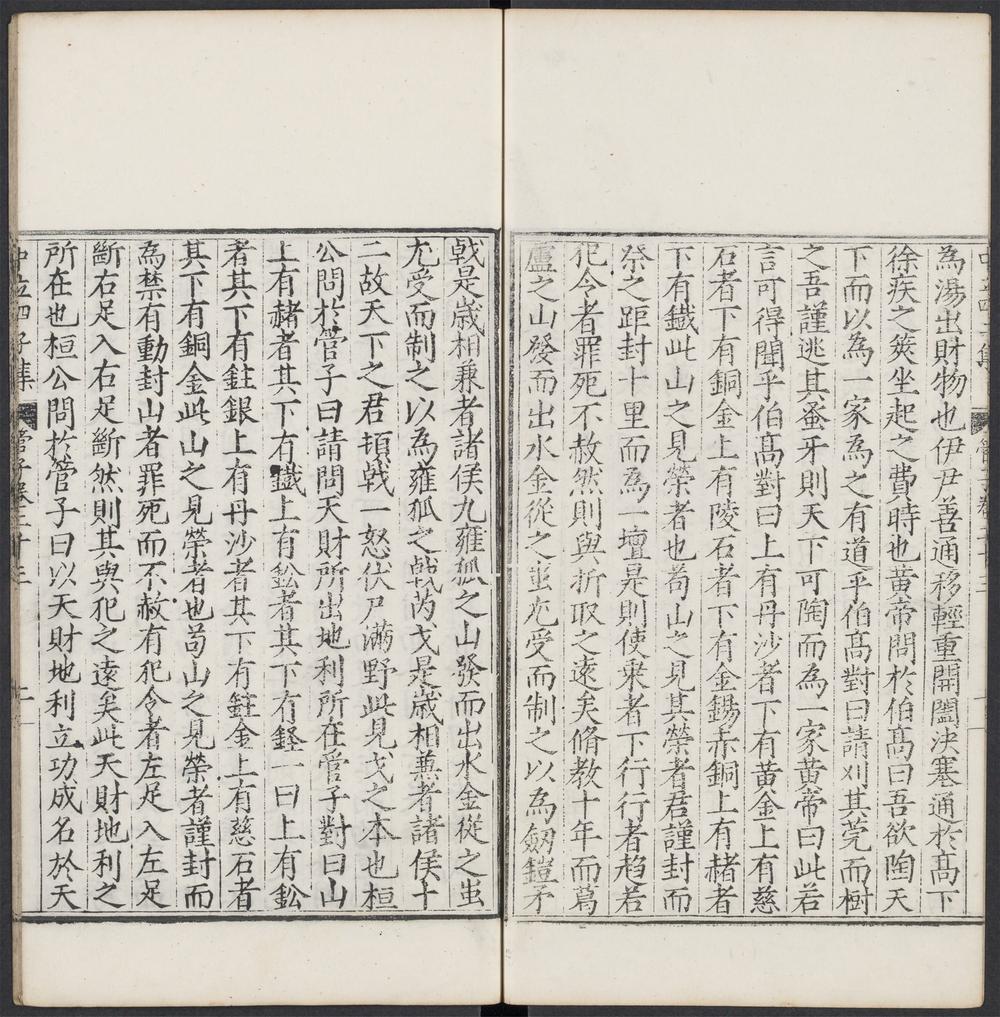 為湯出財物也伊尹善通移輕重開闔決塞通於髙下
徐疾之筴坐起之費時也黃帝問於伯髙曰吾欲陶天
下而以為一家為之有道乎伯髙對曰請刈其莞而樹
之吾謹逃其蚤牙則天下可陶而為一家黃帝曰此若
言可得聞乎伯髙對曰上有丹沙者下有黃金上有慈
石者下有銅金上有陵石者下有金鍚赤銅上有赭者
下有鐵此山之見榮者也苟山之見其榮者君謹封而
祭之距封十里而為一壇是則使乘者下行行者趋若
犯令者罪死不赦然則與折取之遠矣脩教十年而葛
盧之山發而出水金從之蚩尤受而制之以為劔鎧矛
戟是歲相兼者諸侯九雍狐之山發而出水金從之蚩
尤受而制之以為雍狐之戟芮戈是歲相兼者諸侯十
二故天下之君頓戟一怒伏尸滿野此見戈之本也桓
公問於管子曰請問天財所出地利所在管子對曰山
上有赭者其下有鐵上有鈆者其下有銀一曰上有鈆
者其下有鉒銀上有丹沙者其下有鉒金上有慈石者
其下有銅金此山之見榮者也苟山之見榮者謹封而
為禁有動封山者罪死而不赦有犯令者左足入左足
斷右足入右足斷然則其與犯之遠矣此天財地利之
所在也桓公問於管子曰以天財地利立功成名於天
中立四子集 管子卷二十三